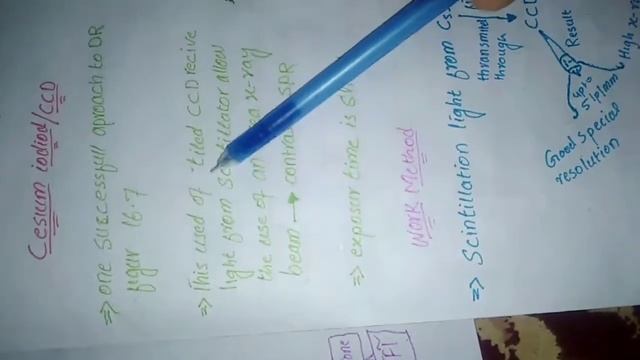 Cesium iodiod/CCD
⇒ one successfull aproach to DR
figur 16.7
⇒ This used of tiled CCD recive
light from Scintillator allow
the use of an x-ray
beam → contra SPR
⇒ exposer time is
Work Method
⇒ Scintillation light from Cs
transmited
through
CCD
Result
High x-r
Upto
5 lp/mm
Good special
resolution
one
FT